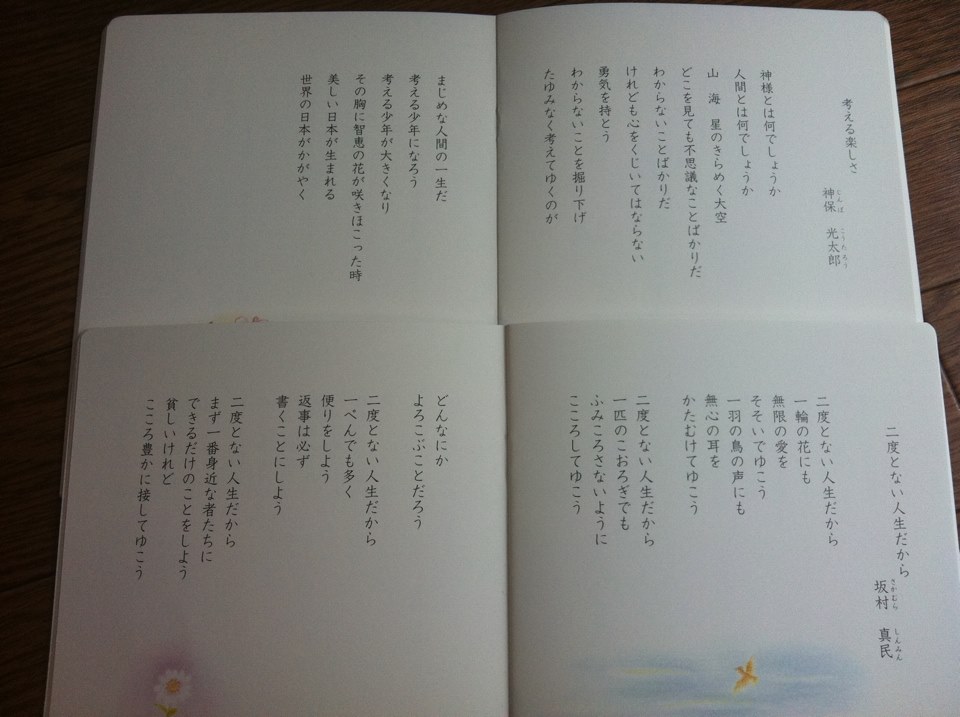 考える楽しさ
神保 光太郎
じんぼ こうたろう
神様とは何でしょうか
人間とは何でしょうか
山 海 星のきらめく大空
どこを見ても不思議なことばかりだ
わからないことばかりだ
けれども心をくじいてはならない
勇気を持とう
わからないことを掘り下げ
たゆみなく考えてゆくのが
まじめな人間の一生だ
考える少年になろう
考える少年が大きくなり
その胸に智恵の花が咲きほこった時
美しい日本が生まれる
世界の日本がかがやく
二度とない人生だから
坂村 真民
さかむら しんみん
二度とない人生だから
一輪の花にも
無限の愛を
そそいでゆこう
一羽の鳥の声にも
無心の耳を
かたむけてゆこう
二度とない人生だから
一匹のこおろぎでも
ふみころさないように
こころしてゆこう
どんなにか
よろこぶことだろう
二度とない人生だから
一ぺんでも多く
便りをしよう
返事は必ず
書くことにしよう
二度とない人生だから
まず一番身近な者たちに
できるだけのことをしよう
貧しいけれど
こころ豊かに接してゆこう